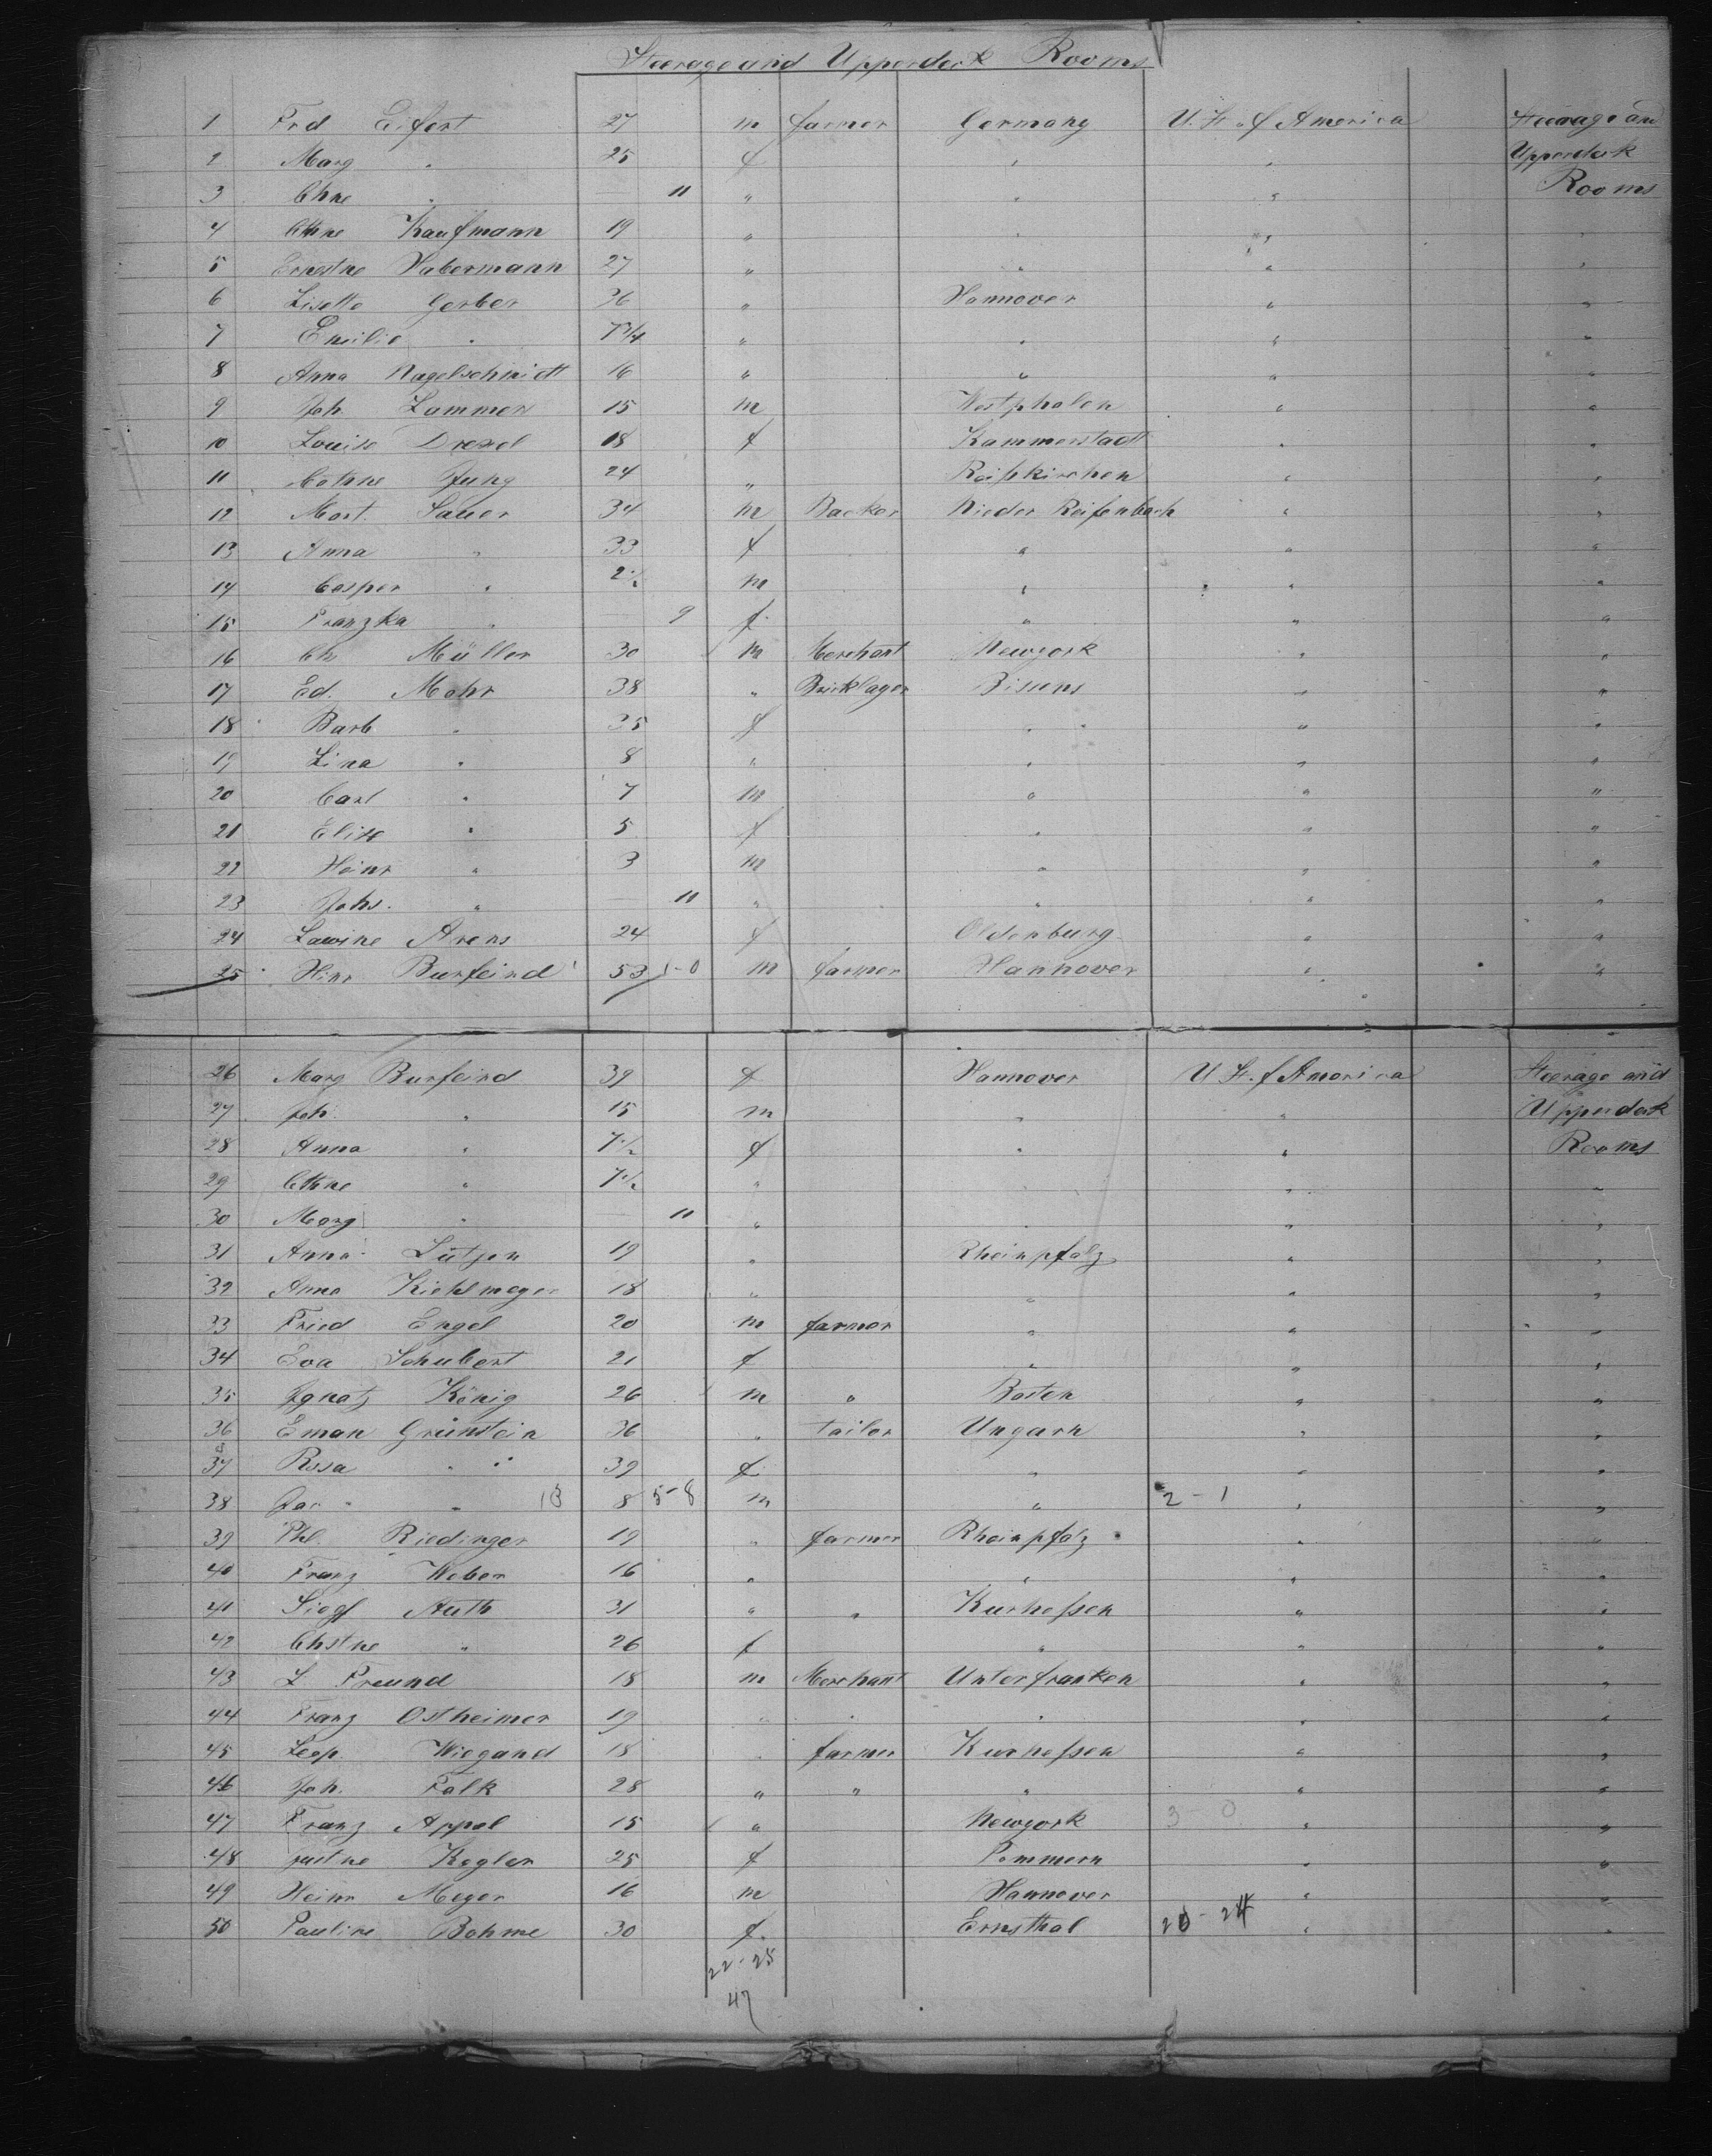 Steerage and Upperdeck Rooms
1 Frd Eifert 27 m farmer Germany U. St. of America Steerage and
2 Marg " 25 f " " Upperdeck
3 Chne " 11 " " " Rooms
4 Cthne Kaufmann 19 " " " "
5 Ernestne Habermann 27 " " " "
6 Lisette Gerber 36 " Hannover " "
7 Emilie " 7 3/4 " " " "
8 Anna Nagelschmidt 16 " " " "
9 Joh Lammers 15 m Westphalen " "
10 Louise Drexel 18 f Kammerstadt " "
11 Cathne Jung 24 " Reißkirchen " "
12 Mart. Sauer 34 m Baeker Nieder Reifenbach " "
13 Anna " 33 f " " "
14 Casper " 2 1/2 m " " "
15 Franzka " 9 f. " " "
16 Ch Müller 30 m Merchant Newyork " "
17 Ed. Mohr 38 " Bricklayer Bissens " "
18 Barb " 35 f " " "
19 Lina " 8 " " " "
20 Carl " 7 m " " "
21 Elise " 5 f " " "
22 Heinr " 3 m " " "
23 Johs. " 11 " " " "
24 Lawine Arens 24 f Oldenburg " "
25 Hinr Burfeind 53 1-0 m farmer Hannover " "
26 Marg Burfeind 39 f Hannover U St. of America Steerage and
27 Joh " 15 m " " Upperdeck
28 Anna " 7 1/2 f " " Rooms
29 Cthne " 7 1/2 " " " "
30 Marg " 11 " " " "
31 Anna Lütjen 19 " Rheinpfalz " "
32 Anna 18 " " " "
33 Fried Engel 20 m farmer " " "
34 Eva Schubert 21 f " " "
35 Ignatz König 26 m " Baden " "
36 Eman Grünstein 36 " tailor Ungarn " "
37 Rosa " 39 f " " "
38 " 13 8 5-8 m " 2-1 " "
39 Phl. Riedinger 19 " farmer Rheinpfalz " "
40 Franz Weber 16 " " " "
41 Siegf Auth 31 " " Kurheßen " "
42 Chstne " 26 f " " "
43 L Freund 18 m Merchant Unterfranken " "
44 Franz Ostheimer 19 " " " " "
45 Leop. Wiegand 18 " farmer Kurheßen " "
46 Joh. Falk 28 " " " " "
47 Franz Appel 15 " Newyork 3-0 " "
48 Justne Kegler 25 f Pommern " "
49 Heinr Meyer 16 m Hannover " "
50 Pauline Bohme 30 f. Ernsthal 20-24 " "
22-25
47